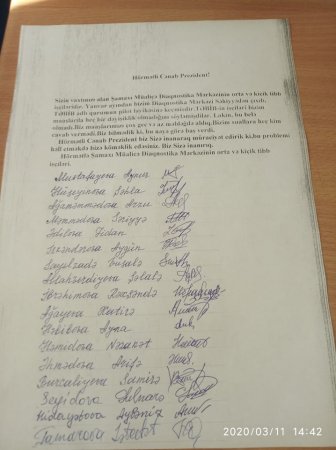 Hörmətli Cənab Prezident!
Sizin vəsitəniz olan Şamaxı Müalicə Diaqnostika Mərkəzinin orta və kiçik tibb
işçiləriyik. Yanvar ayından bizim Diaqnostika Mərkəzi Səhiyyədən çıxıb,
TƏBİB adlı qurumun tabeliyinə keçmişdir. TƏBİB-in işçiləri bizim
maaşlarda heç bir dəyişiklik olmadığını söyləmişdilər. Lakin, bu belə
olmadı. Biz maaşlarımızı çox gec və az məbləğdə aldıq. Bizim suallara heç kim
cavab vermədi. Biz bilmədik ki, bu nəyə görə baş verdi.
Hörmətli Cənab Prezident biz Sizə inanaraq müraciət edirik ki, bu problemi
həll etməkdə bizə köməklik edəsiniz. Biz Sizə inanırıq.
Hörmətlə Şamaxı Müalicə Diaqnostika Mərkəzinin orta və kiçik tibb
işçiləri.
Mustafayeva Aynur
Hüseynova Şəhla
Ağaməmmədova Arzu
Məmmədova Səriyyə
Ədilova Fidan
İsgəndərova Aygün
Allahverdiyeva Şəlalə
İbrahimova Rəvşanə
Ağayeva Xatirə
Həkibova Ayna
Həmidova Nəzakət
Əhmədova Arifə
Burcəliyeva Samirə
Seyidova Gülnarə
Hidayətova Aybəniz
Tamarova İradət
2020/03/11 14:42